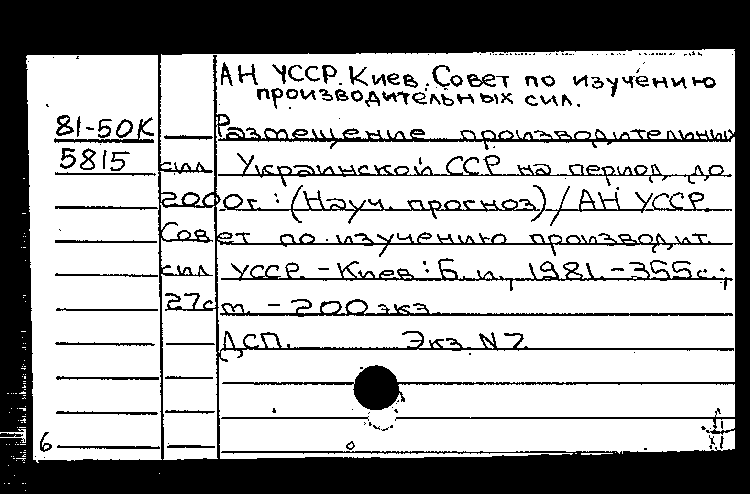 АН УССР. Киев. Совет по изучению
производительных сил.
81-50К Размещение производительных
5815 сил Украинской ССР на период до
2000г. : (Науч. прогноз) / АН УССР.
Совет по изучению производит.
сил УССР. - Киев : Б. и., 1981. - 355с.;
27см. - 200 экз.
ДСП. Экз. N 7.
6